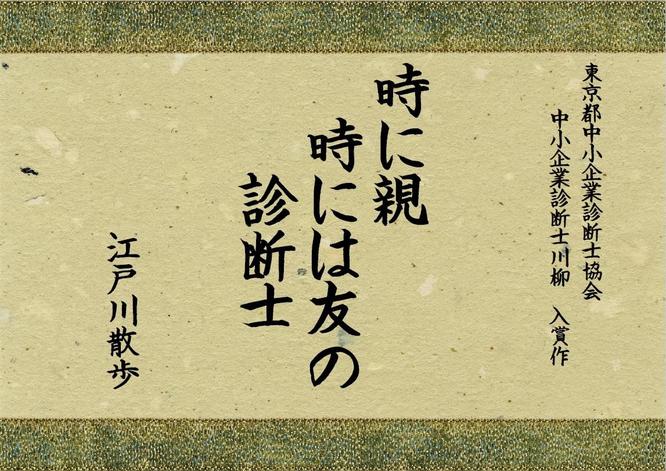 東京都中小企業診断士協会
中小企業診断士川柳　入賞作
時に親
時には友の
診断士
江戸川散歩